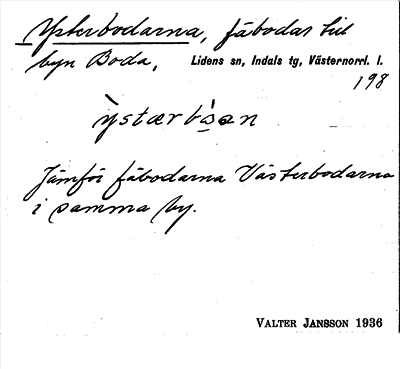 Ysterbodarna, fäbodar till
byn Boda, Lidens sn, Indals tg, Västernorrl. l.
198
ỳstærbὰ̣an
Jämför fäbodarna Västerbodarna
i samma by.
VALTER JANSSON 1936